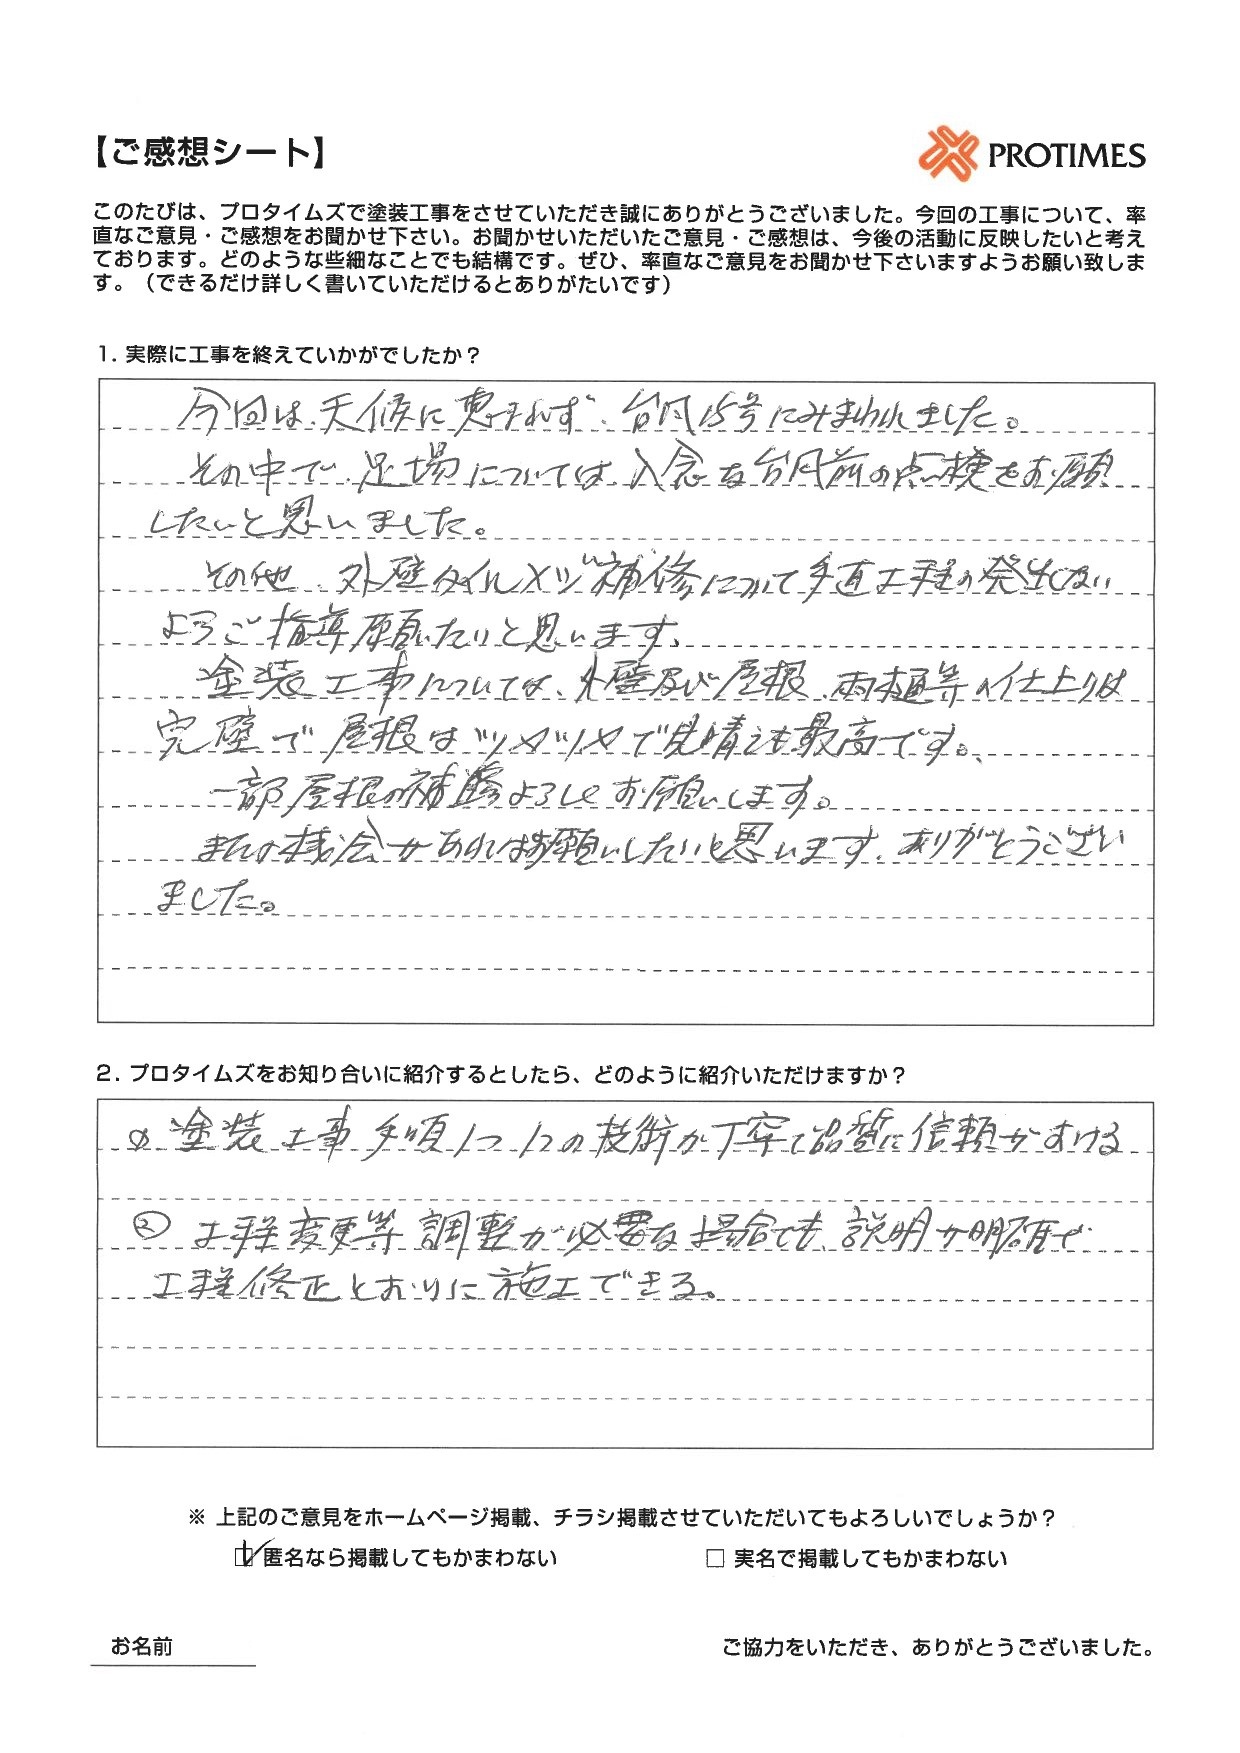 【ご感想シート】
PROTIMES
このたびは、プロタイムズで塗装工事をさせていただき誠にありがとうございました。今回の工事について、率
直なご意見・ご感想をお聞かせ下さい。お聞かせいただいたご意見・ご感想は、今後の活動に反映したいと考え
ております。どのような些細なことでも結構です。ぜひ、率直なご意見をお聞かせ下さいますようお願い致しま
す。（できるだけ詳しく書いていただけるとありがたいです）
1. 実際に工事を終えていかがでしたか？
今回は、天候に恵まれず、台風15号にみまわれました。
その中で、足場については、入念な台風前の点検をお願
したいと思いました。
その他、外壁タイルメジ補修について手直工程の発生しない
ようご指導願いたいと思います、
塗装工事については、外壁及び屋根、雨樋等の仕上りは
完璧で屋根はツヤツヤで見晴えも最高です。
一部屋根の補修よろしくお願いします。
またの機会があればお願いしたいと思います、ありがとうござい
ました。
2. プロタイムズをお知り合いに紹介するとしたら、どのように紹介いただけますか？
① 塗装工事手順1つ1つの技術が丁寧で品質に信頼がおける
② 工程変更等調整が必要な場合でも、説明が明確で
工程修正とおりに施工できる。
※ 上記のご意見をホームページ掲載、チラシ掲載させていただいてもよろしいでしょうか？
☑ 匿名なら掲載してもかまわない □ 実名で掲載してもかまわない
お名前 ご協力をいただき、ありがとうございました。